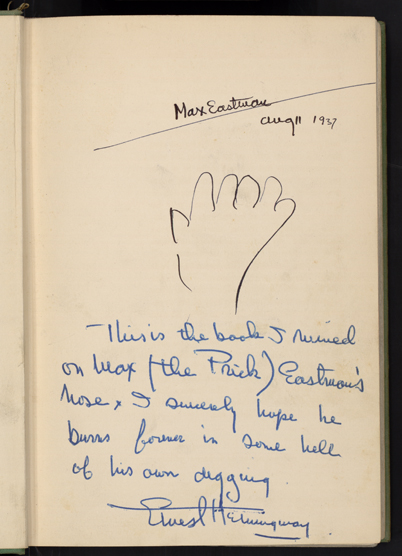 Max Eastman
Aug 11 1937
This is the book I ruined
on Max (the Prick) Eastman's
nose, I sincerely hope he
burns forever in some hell
of his own digging
Ernest Hemingway